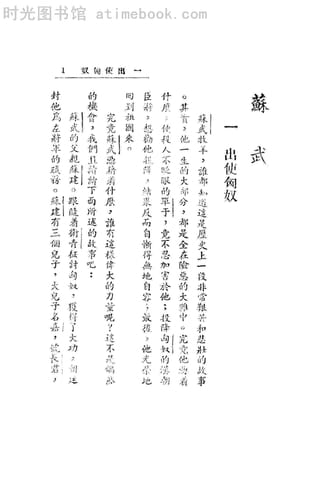 时光图书馆 atimebook.com
1 奴匈使出 一
蘇武
一 出使匈奴
蘇武牧羊，誰都知道這是歷史上一段非常艱苦和悲壯的故事
。其實，他一生的大部分，都是全在險惡的大難中。究竟他為着
什麼，使殺人不眨眼的單于，都是不忍加害於他；投降匈奴的漢朝
臣將，想勸他投降，結果反而自慚得無地自容；最後，他光榮地
回到祖國來。
究竟蘇武憑藉着什麼，誰有這樣偉大的力量呢？這不是偶然
的機會，我們且請給下面所述的故事吧：
蘇武的父親蘇建，跟隨着衛青征討匈奴，獲得了大功，朝廷
封他為左將軍的職務。蘇建有三個兒子，大兒子名嘉，號長君，